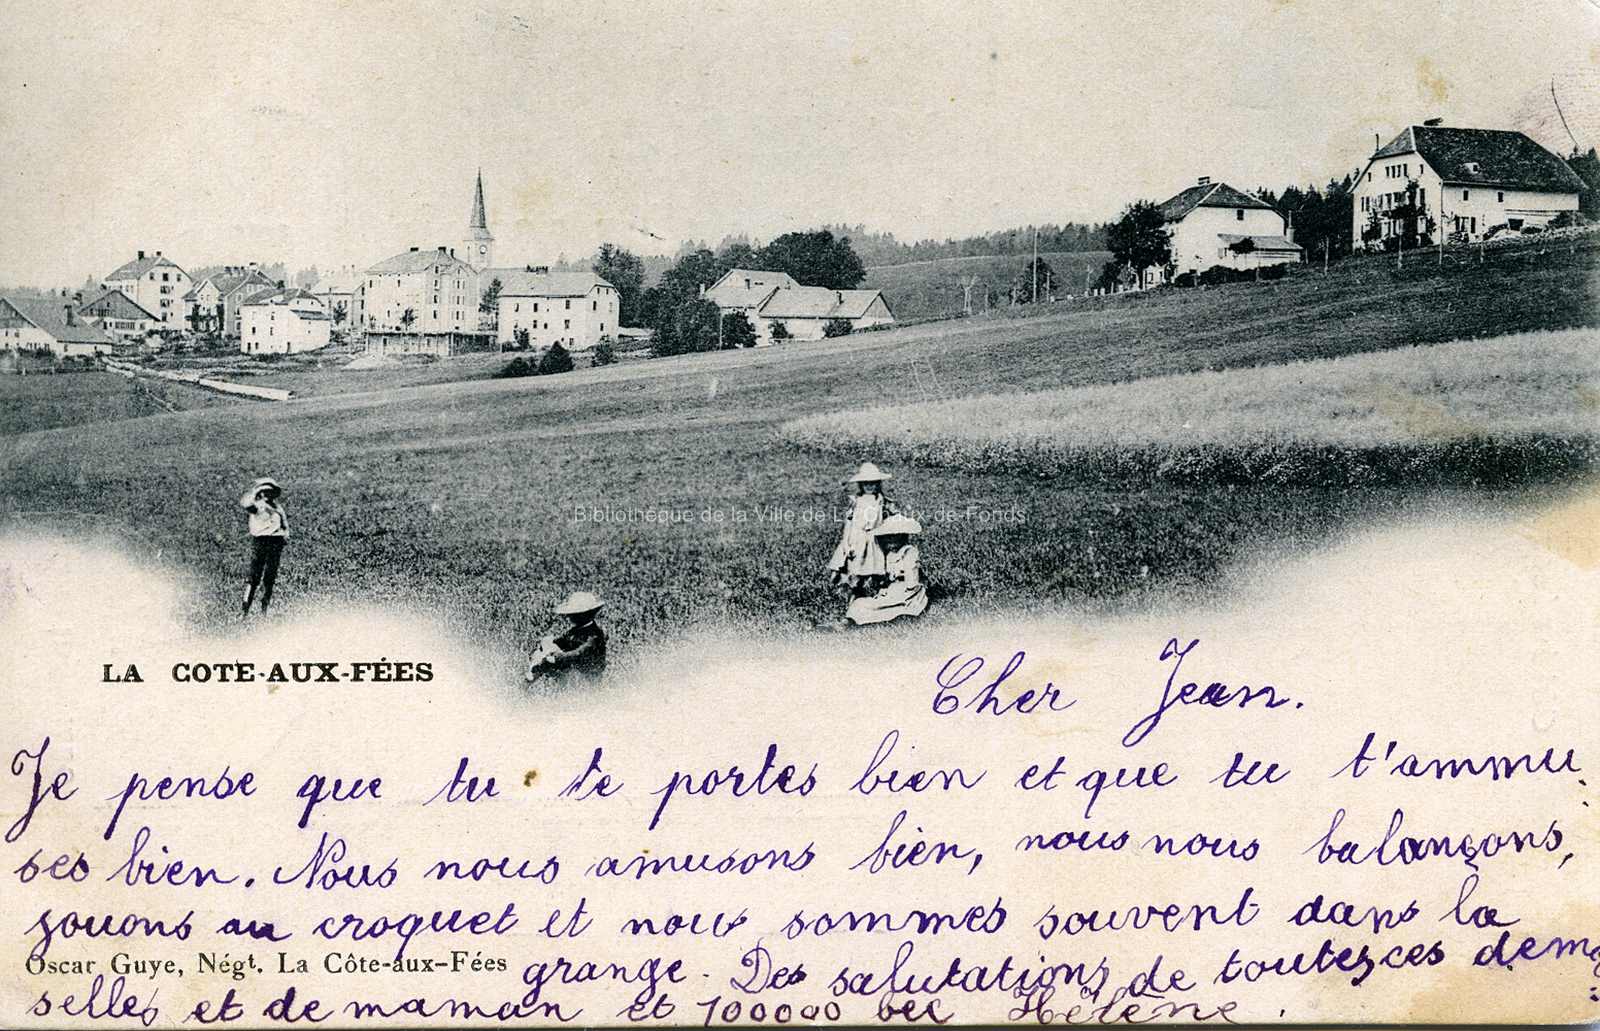 Bibliothèque de la Ville de La Chaux-de-Fonds
LA COTE-AUX-FÉES
Cher Jean.
Je pense que tu te portes bien et que tu t'ammu-
ses bien. Nous nous amusons bien, nous nous balançons,
jouons au croquet et nous sommes souvent dans la
Oscar Guye, Négt. La Côte-aux-Fées
grange. Des salutations de toutes ces demoi-
selles et de maman et 100000 bec Hélène.